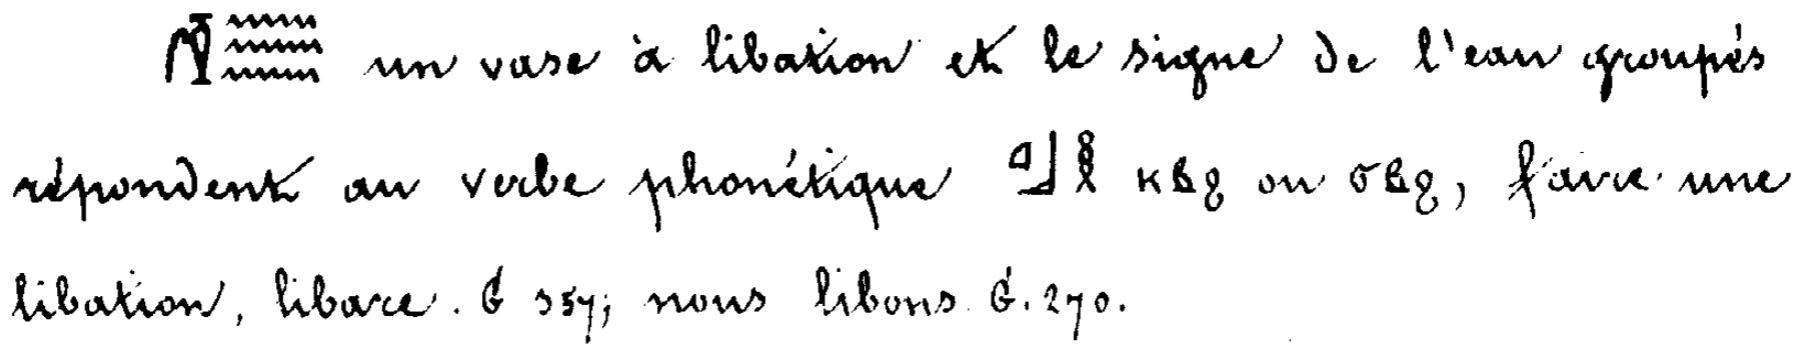 𓏂𓈗 un vase à libation et le signe de l'eau groupés
répondent au verbe phonétique 𓈎𓃀𓎛 ⲕⲃϩ ou ϭⲃϩ, faire une
libation, libare. G 357; nous libons G. 270.